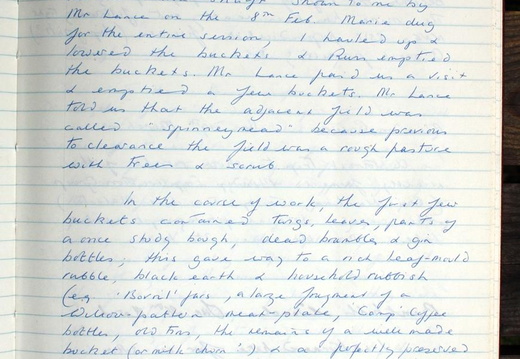 shown to me by
Mr Lance on the 8th Feb. Marie dug
for the entire session, I hauled up &
lowered the buckets & Russ emptied
the buckets. Mr Lance paid us a visit
& emptied a few buckets. Mr Lance
told us that the adjacent field was
called "Spinneymead" because previous
to clearance the field was a rough pasture
with trees & scrub
In the course of work, the first few
buckets contained twigs, leaves, parts of
a once study bough, dead brambles & gin
bottles; this gave way to a rich leaf-mould
rubble, black earth & household rubbish
(eg 'Bovril' jars, a large fragment of a
Willow-pattern meat-plate, 'Camp' Coffee
bottles, old tins, the remains of a well made
bucket (or milk churn?) & a perfectly preserved